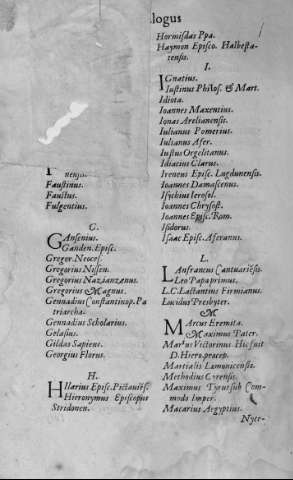 logus
nensis.
Faustinus.
Faustus.
Fulgentius.
G.
GAnsenius.
Ganden. Episc.
Gregor. Neoces.
Gregorius Nissen.
Gregorius Nazianzenus.
Gregorius Magnus.
Gennadius Constantinop. Pa
triarcha.
Gennadius Scholarius.
Gelasius.
Gildas Sapiens.
Georgius Florus.
H.
HIlarius Episc. Pictaviēs.
Hieronymus Episcopus
Stridonen.
Hormisdas Ppa.
Haymon Episco. Halbesta-
tensis.
I.
IGnatius.
Iustinus Philos. & Mart.
Idiota.
Ioannes Maxentius.
Ionas Arelianensis.
Iulianus Pomerius.
Iulianus Afer.
Iustus Orgelitanus.
Idiacius Clarus.
Ireneus Episc. Lugdunensis.
Ioannes Damascenus.
Isychius Ierosol.
Ioannes Chrysost.
Ioannes Episc. Rom.
Isidorus.
Isaac Episc.
L.
LAnfrancus Cantuariēsis.
Leo Papa primus.
L. C. Lactantius Firmianus.
Lucidus Presbyter.
M.
MArcus Eremita.
Maximus Pater.
Marius Victorinus Hic fuit
D. Hiero. præcep.
Martialis Lemonicensis.
Methodius
Maximus Tyrius sub Com-
modo Imper.
Macarius Aegyptius.